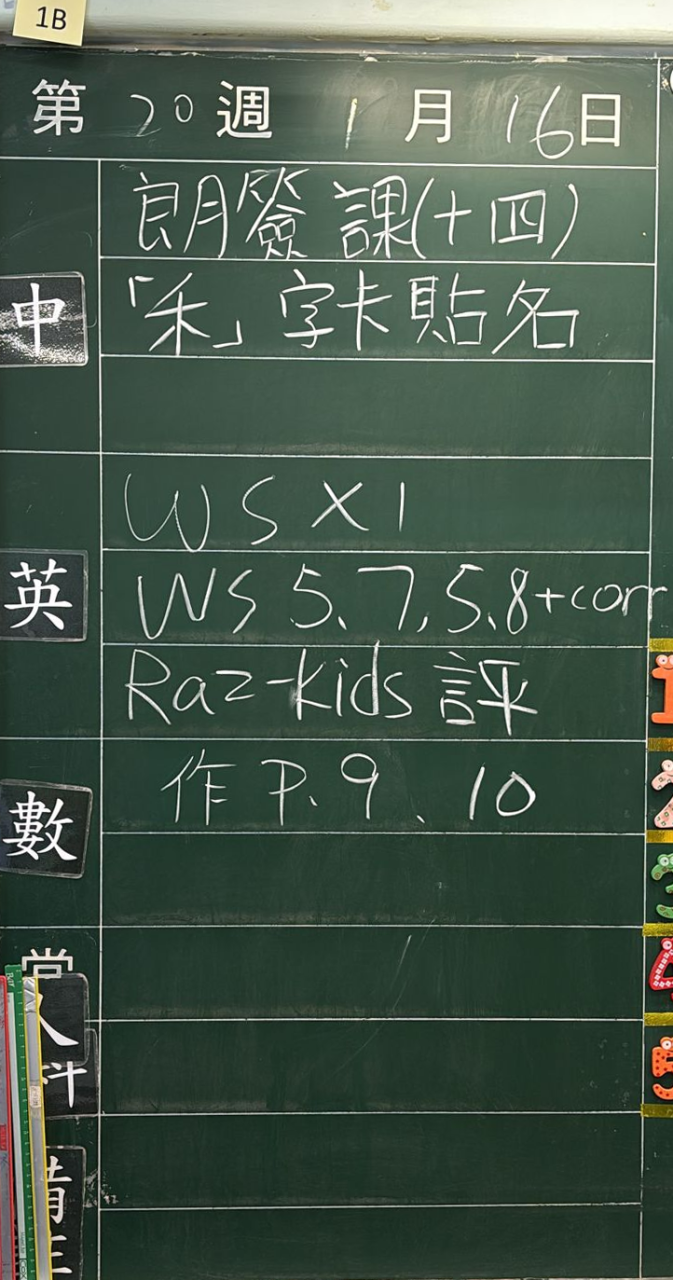 1B
第 20 週 1 月 16 日
朗簽 課(十四)
中
「禾」字卡貼名
WS X 1
英
WS 5、7, 5、8+corr
Raz-kids 評
數
作 P、9、10
常
人
科